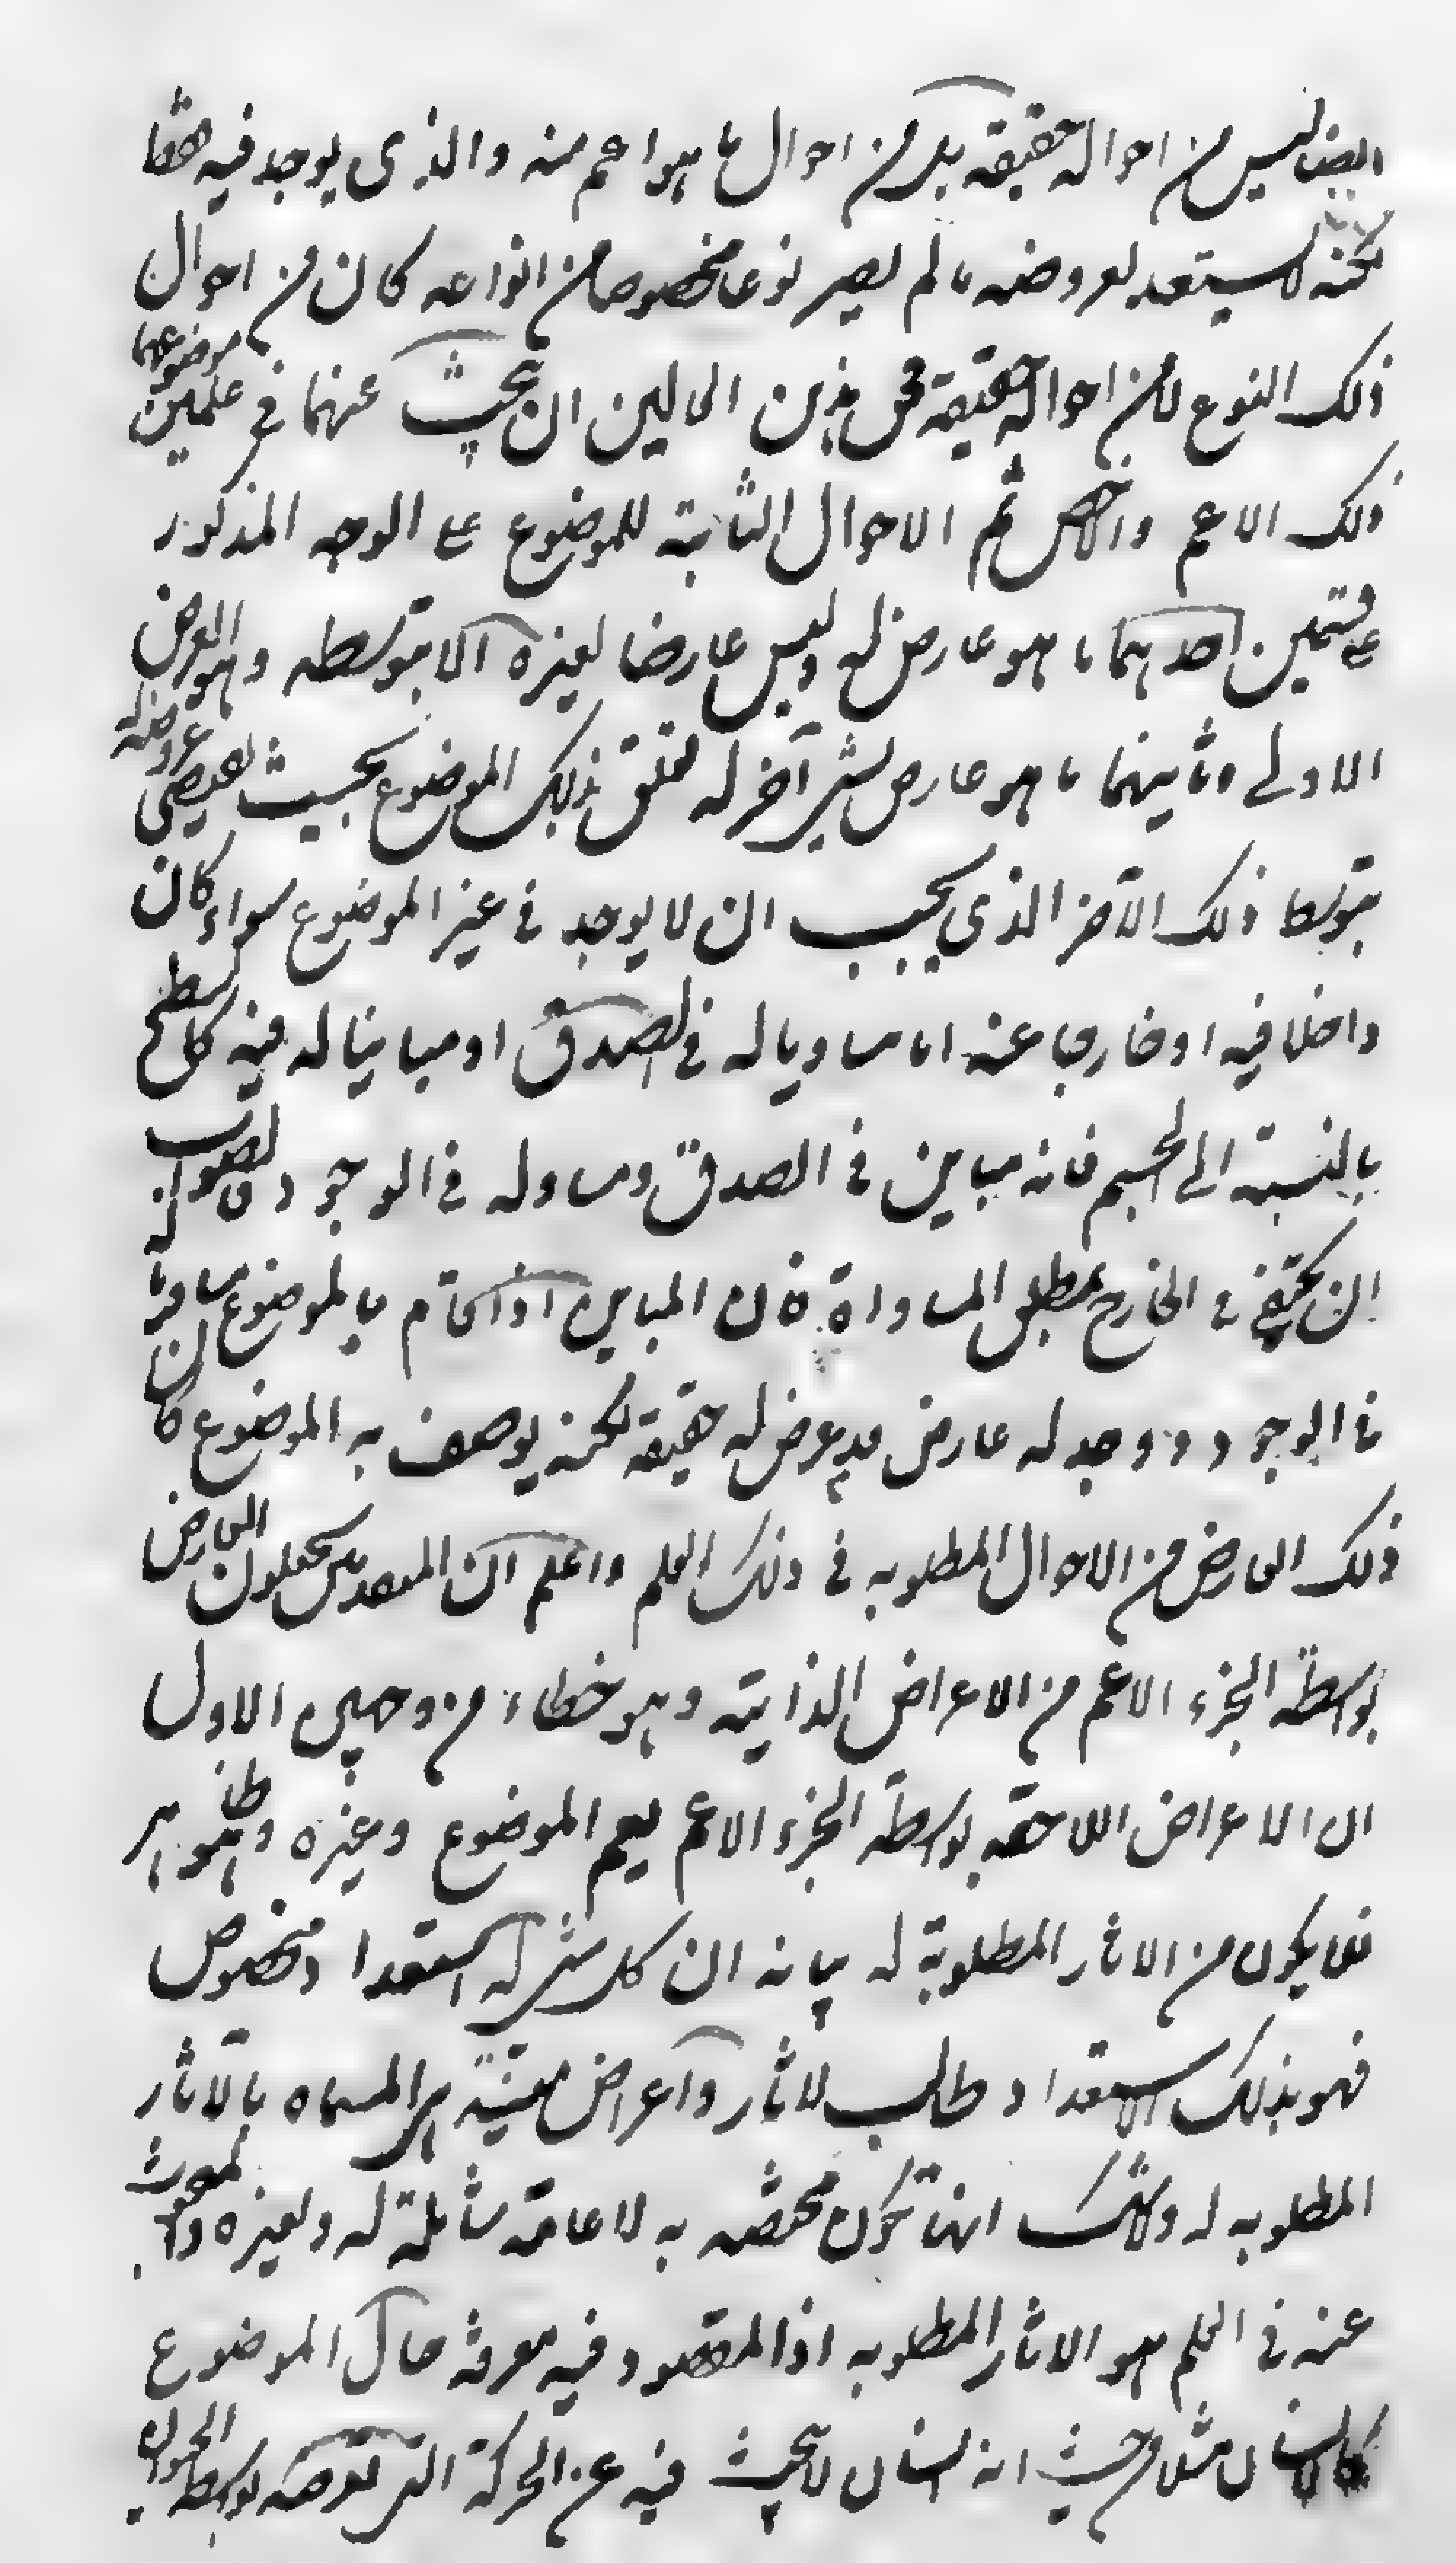 ايضا ليس من احواله حقيقة بل من احوال ما هو اعم منه والذى يوجد فيه فقط
لكنه لا يستعد لعروضه ما لم يصر نوعا مخصوصا من انواعه كان من احوال
ذلك النوع لا من احواله حقيقة فحق هذين الحالين ان يبحث عنهما فى علمين موضوعهما
ذلك الاعم والاخص ثم الاحوال الثابتة للموضوع على الوجه المذكور
على قسمين احدهما ما هو عارض له وليس عارضا لغيره الا بتوسطه وهو العرض
الاولى وثانيهما ما هو عارض لشئ آخر له تعلق بذلك الموضوع بحيث يقتضى عروضه له
بتوسط ذلك الآخر الذى يجب ان لا يوجد فى غير الموضوع سواء كان
داخلا فيه او خارجا عنه اما مساويا له فى الصدق او مباينا له فيه كالسطح
بالنسبة الى الجسم فانه مباين فى الصدق ومساو له فى الوجود والصواب
ان يكتفى فى الخارج بمطلق المساواة فان المباين اذا قام بالموضوع مساويا له
فى الوجود ووجد له عارض قد عرض له حقيقة لكنه يوصف به الموضوع كان
ذلك العارض من الاحوال المطلوبه فى ذلك العلم واعلم ان المتقدمين يجعلون العارض
بواسطة الجزء الاعم من الاعراض الذاتية وهو خطاء من وجهين الاول
ان الاعراض اللاحقه بواسطة الجزء الاعم يعم الموضوع وغيره وهو ظاهر
فلا يكون من الاثار المطلوبة له بيانه ان كل شئ له استعداد مخصوص
فهو بذلك الاستعداد طالب لاثار واعراض معينة هى المسماه بالآثار
المطلوبه له ولا شك انها تكون مختصه به لا عامة شاملة له ولغيره والمبحوث
عنه فى العلم هو الاثار المطلوبه اذ المقصود فيه معرفة حال الموضوع
كالانسان مثلا من حيث انه انسان لا يبحث فيه عن الحركة التى تعرضه بواسطة الحيوان